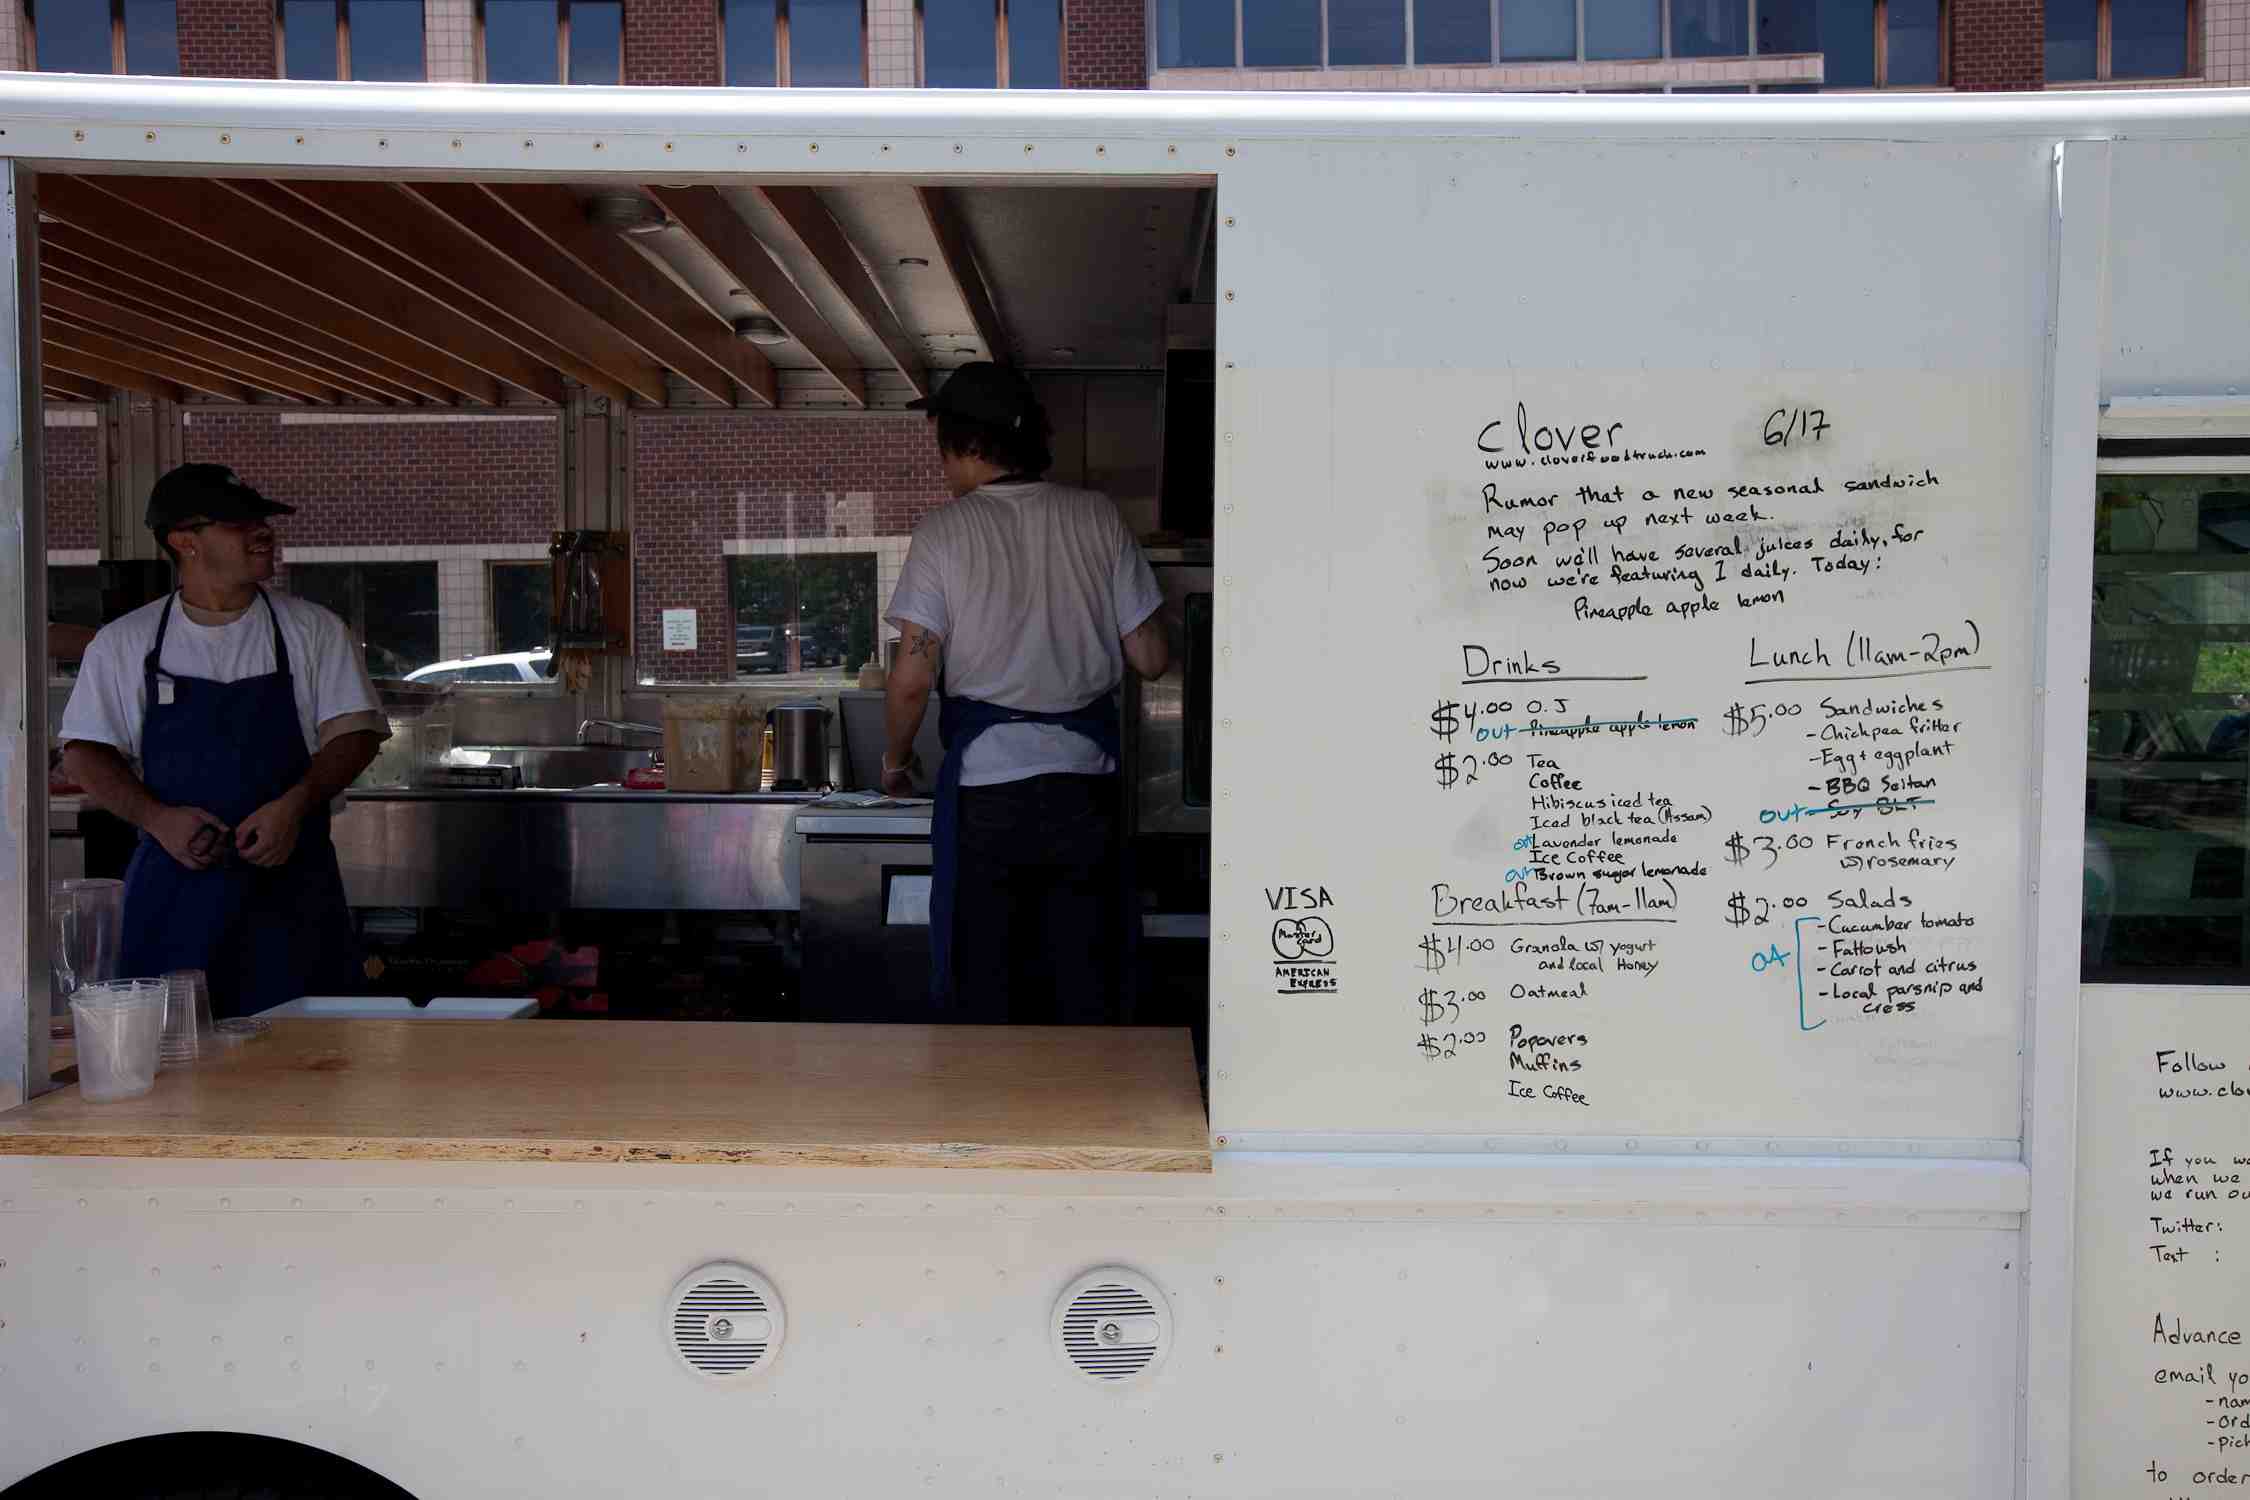 Clover 6/17
www.cloverfoodtruck.com
Rumor that a new seasonal sandwich
may pop up next week.
Soon we'll have several juices daily, for
now we're featuring 1 daily. Today:
Pineapple apple lemon
Drinks
$4.00 O.J
out Pineapple apple lemon
$2.00 Tea
Coffee
Hibiscus iced tea
Iced black tea (Assam)
out Lavender lemonade
Ice Coffee
out Brown sugar lemonade
Breakfast (7am-11am)
$4.00 Granola w/ yogurt
and local Honey
$3.00 Oatmeal
$2.00 Popovers
Muffins
Ice Coffee
VISA
Master
Card
AMERICAN
EXPRESS
Lunch (11am-2pm)
$5.00 Sandwiches
- Chickpea fritter
- Egg + eggplant
- BBQ Seitan
out - Soy BLT
$3.00 French fries
w/ rosemary
$2.00 Salads
- Cucumber tomato
- Fattoush
out - Carrot and citrus
- Local parsnip and
cress
Follow
www.clo
If you
when we
we run
Twitter:
Text :
Advance
email yo
- nam
- ord
- pick
to order